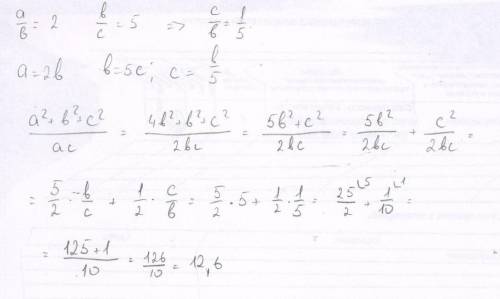 a/b = 2 b/c = 5 => c/b = 1/5
a=2b b=5c; c = b/5
(a²+b²+c²)/ac = (4b²+b²+c²)/2bc = (5b²+c²)/2bc = 5b²/2bc + c²/2bc =
= 5/2 · b/c + 1/2 · c/b = 5/2 · 5 + 1/2 · 1/5 = 25/2 ⌞5 + 1/10 ⌞1 =
= (125+1)/10 = 126/10 = 12,6